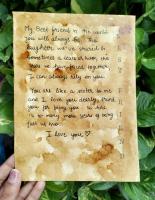 My Best friend in the world
you will always be. The
laughter we've shared is
sometimes a scare or two, the
we have faced together,
I can always rely on you.
You are like a sister to me
and I love you dearly, thank
you for being you. is to
to so many more years of being
just us two.
I love you ♡